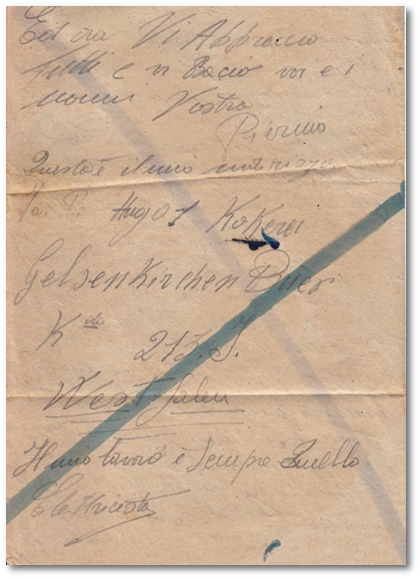 Ed ora Vi Abbraccio
tutti e vi Bacio voi e i
nonni Vostro
Pierino
Questo è il mio indirizzo
Hugo 1 Kokerei
Gelsenkirchen Buer
K do 213. J.
Westfalen
Il mio lavoro è sempre Quello
Elettricista